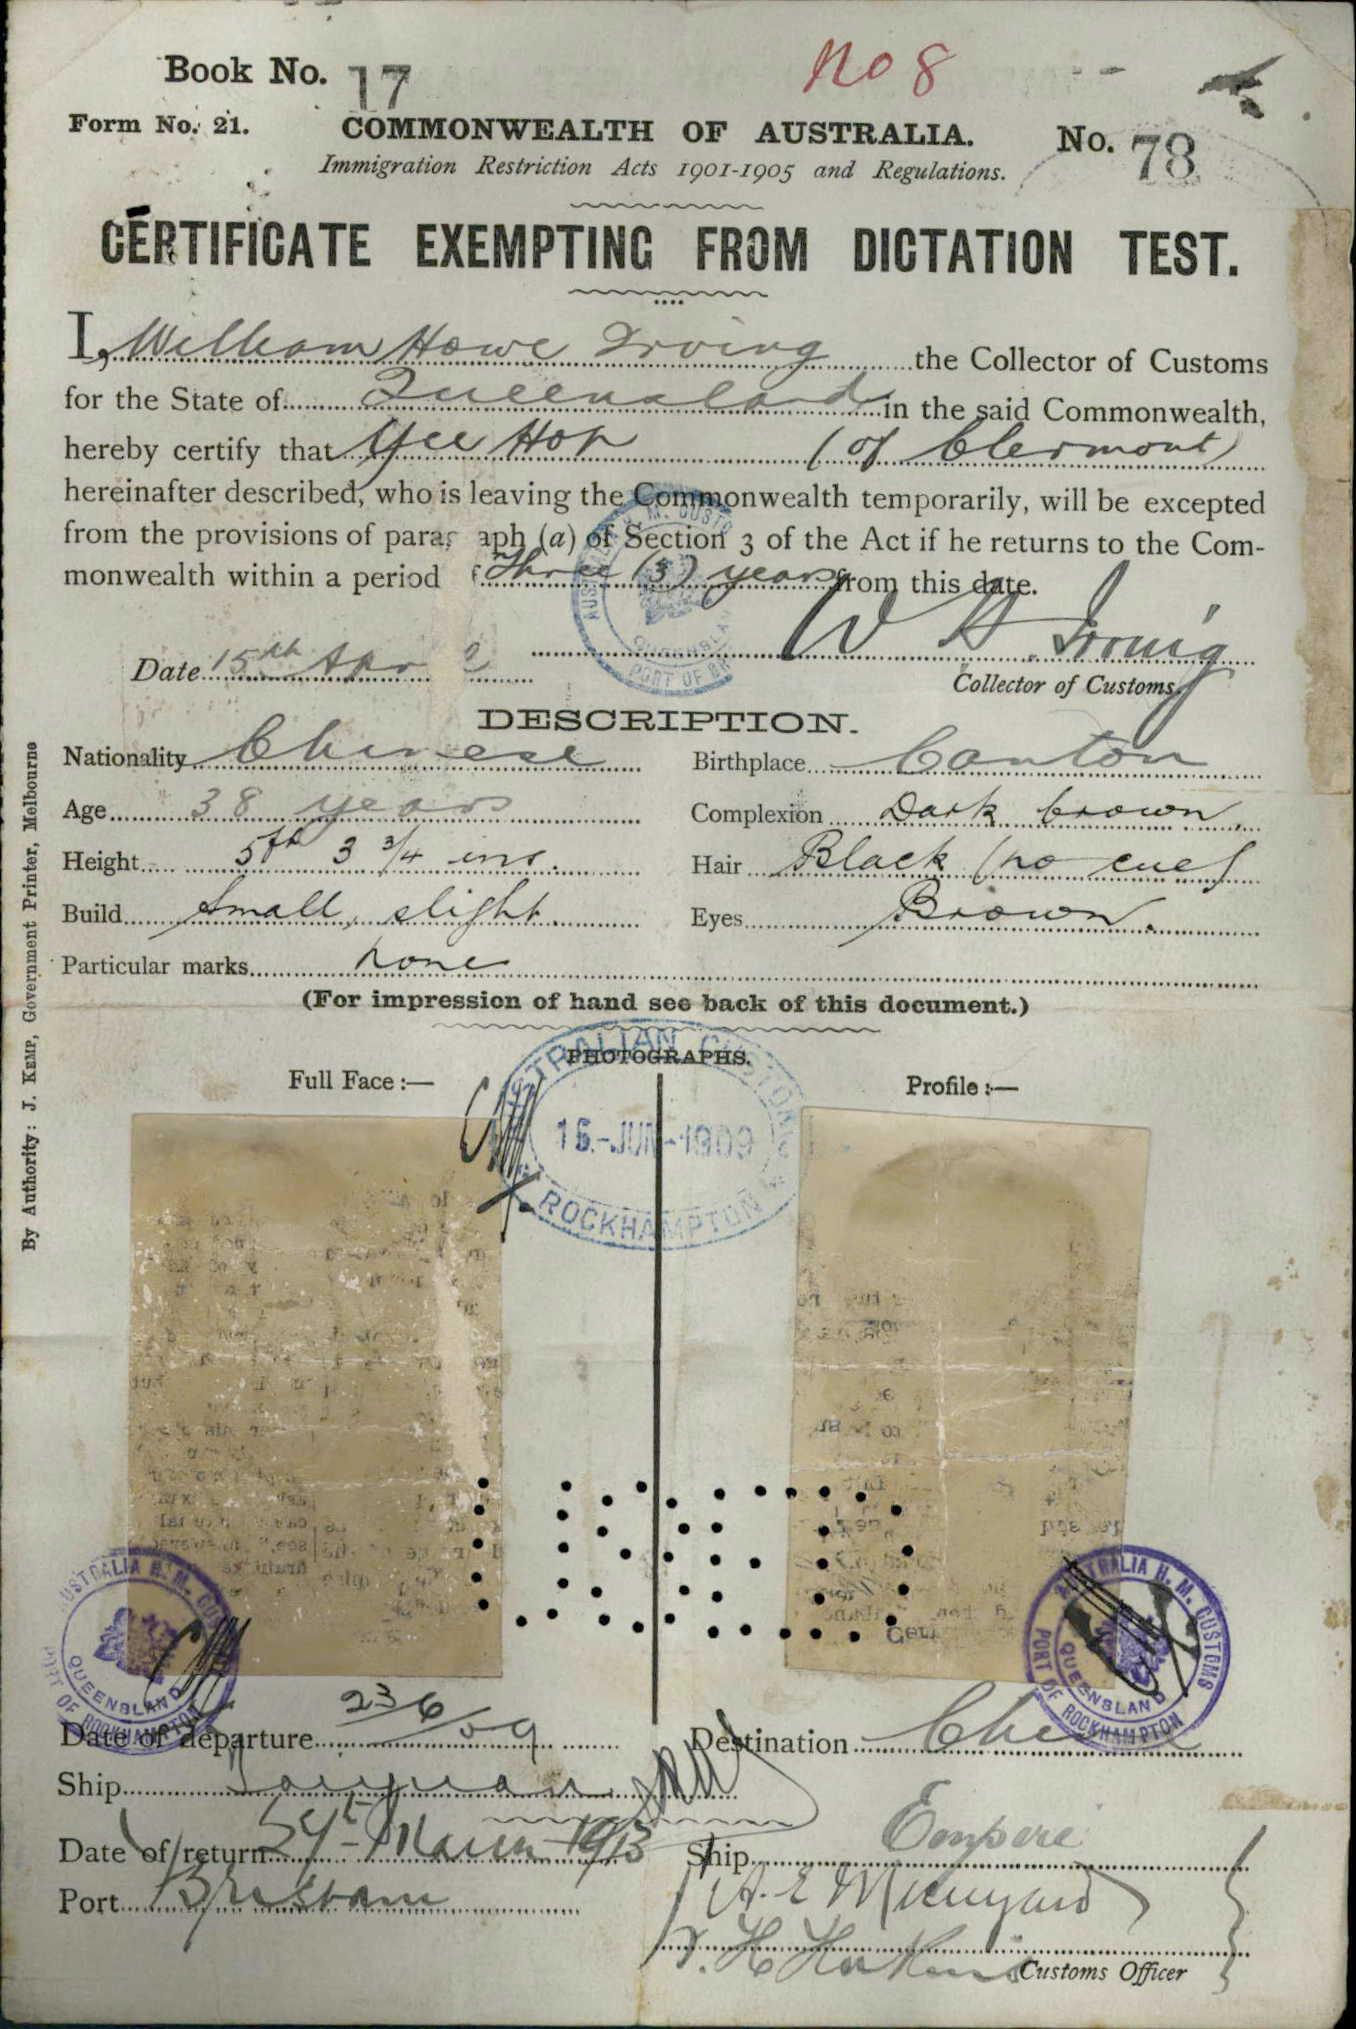 Book No. 17
No 8
Form No. 21.
COMMONWEALTH OF AUSTRALIA.
No. 78
Immigration Restriction Acts 1901-1905 and Regulations.
CERTIFICATE EXEMPTING FROM DICTATION TEST.
I, William Howe Irving the Collector of Customs
for the State of Queensland in the said Commonwealth,
hereby certify that Yee Hop (of Clermont)
hereinafter described, who is leaving the Commonwealth temporarily, will be excepted
from the provisions of paragraph (a) of Section 3 of the Act if he returns to the Com-
monwealth within a period of Three (3) years from this date.
W H Irving
Date 15th Apr
Collector of Customs.
DESCRIPTION.
Nationality Chinese
Birthplace Canton
Age 38 years
Complexion Dark brown.
Height 5ft 3 3/4 ins.
Hair Black (no cue)
Build Small, slight.
Eyes Brown.
Particular marks none
(For impression of hand see back of this document.)
PHOTOGRAPHS.
Full Face :—
Profile :—
AUSTRALIAN CUSTOMS
-JUN-1909
ROCKHAMPTON
By Authority: J. KEMP, Government Printer, Melbourne
AUSTRALIA H. M. CUSTOMS
QUEENSLAND
PORT OF ROCKHAMPTON
AUSTRALIA H. M. CUSTOMS
QUEENSLAND
PORT OF ROCKHAMPTON
Date of departure 23/6/09
Destination China
Ship
Date of return March 1913
Ship Empire
Port Brisbane
Customs Officer